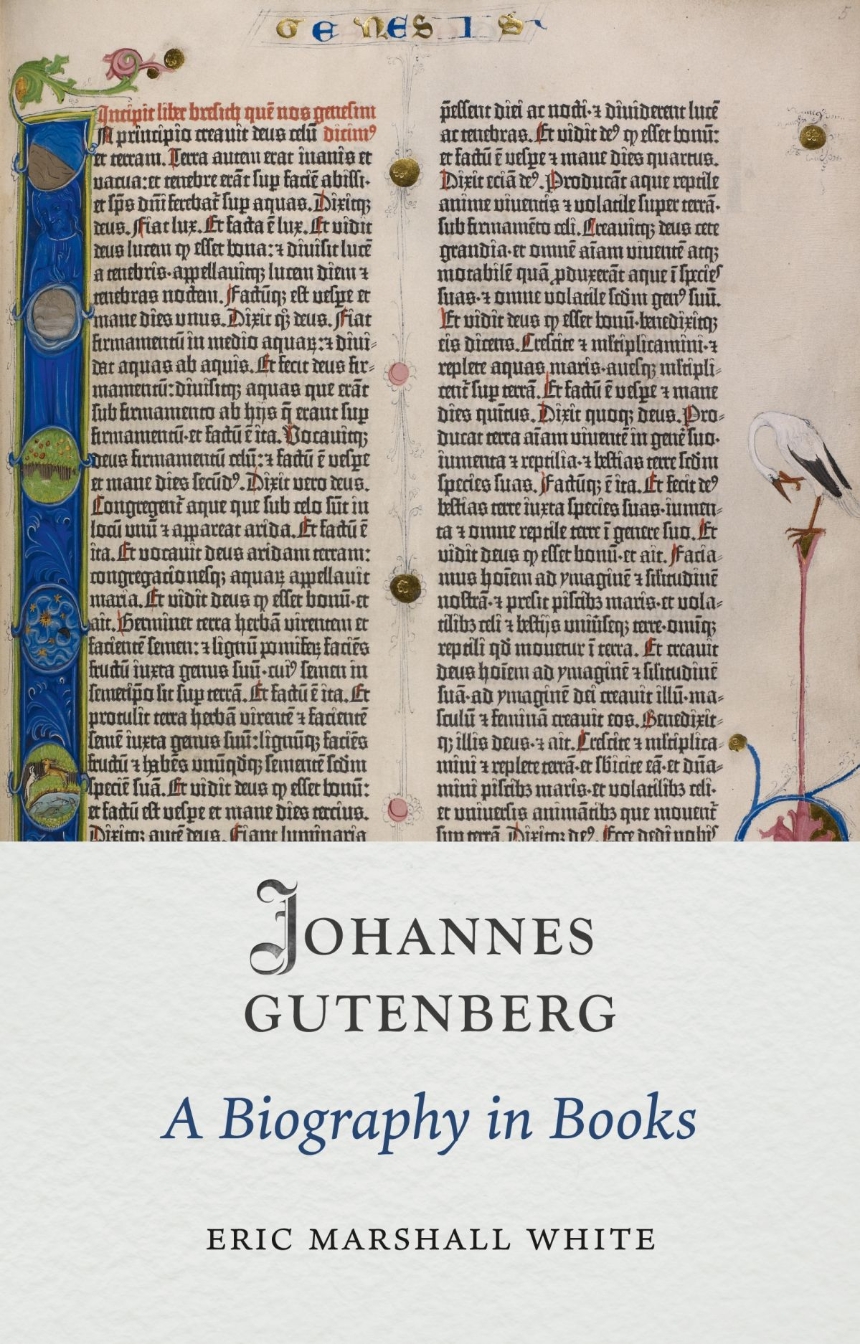 GENESIS
5
Incipit liber bresich quē nos genesim
IN principio creauit deus celū dicim⁹
et terram. Terra autem erat inanis et
vacua: et tenebre erāt sup faciē abissi·
et sp̄s dn̄i ferebat̄ sup aquas. Dixitqꝫ
deus. Fiat lux. Et facta ē lux. Et vidit
deus lucem ꝙ esset bona: ⁊ diuisit lucē
a tenebris·appellauitqꝫ lucem diem ⁊
tenebras noctem. Factūqꝫ est vespe et
mane dies vnus. Dixit qꝫ deus. Fiat
firmamentū in medio aquaꝝ: ⁊ diui-
dat aquas ab aquis. Et fecit deus fir-
mamentū: diuisitqꝫ aquas que erāt
sub firmamento ab hijs q̄ erant sup
firmamentū·et factū ē ita. Vocauitqꝫ
deus firmamentū celū: ⁊ factū ē vespe
et mane dies secūd⁹. Dixit vero deus.
Congregent̄ aque que sub celo sūt in
locū vnū ⁊ appareat arida. Et factū ē
ita. Et vocauit deus aridam terram:
congregacionesqꝫ aquaꝝ appellauit
maria. Et vidit deus ꝙ esset bonū·et
ait. Germinet terra herbā virentem et
facientē semen: ⁊ lignū pomifeꝝ faciēs
fructū iuxta genus suū·cui⁹ semen in
semetip̄o sit sup terrā. Et factū ē ita. Et
protulit terra herbā virentē ⁊ facientē
semē iuxta genus suū: lignūqꝫ faciēs
fructū ⁊ habēs vnūqdqꝫ sementē scdm
speciē suā. Et vidit deus ꝙ esset bonū:
et factū est vespe et mane dies tercius.
Dixitqꝫ autē deus. Fiant luminaria
pēssent diei ac nocti·⁊ diuiderent lucē
ac tenebras. Et vidit de⁹ ꝙ esset bonū:
et factū ē vespe ⁊ mane dies quartus.
Dixit eciā de⁹. Producāt aque reptile
anime viuentis ⁊ volatile super terrā·
sub firmamēto celi. Creauitqꝫ deus cete
grandia·et omnē aīam viuentē atqꝫ
motabilē quā ꝓduxerāt aque ī species
suas·⁊ omne volatile scdm gen⁹ suū.
Et vidit deus ꝙ esset bonū·benedixitqꝫ
eis dicens. Crescite ⁊ mltiplicamini·⁊
replete aquas maris·auesqꝫ mltipli-
cent̄ sup terrā. Et factū ē vespe ⁊ mane
dies quītus. Dixit quoqꝫ deus. Pro-
ducat terra aīam viuentē in genē suo·
iumenta ⁊ reptilia·⁊ bestias terre scdm
species suas. Factūqꝫ ē ita. Et fecit de⁹
bestias terre iuxta species suas·iumen-
ta ⁊ omne reptile terre ī genere suo. Et
vidit deus ꝙ esset bonū·et ait. Facia-
mus hoīem ad ymaginē ⁊ silitudinē
nostrā·⁊ presit piscibꝫ maris·et vola-
tilibꝫ celi ⁊ bestijs vniūseqꝫ terre·omīqꝫ
reptili qd mouetur ī terra. Et creauit
deus hoīem ad ymaginē ⁊ silitudinē
suā·ad ymaginē dei creauit illū·ma-
sculū ⁊ feminā creauit eos. Benedixit-
qꝫ illis deus·⁊ ait. Crescite ⁊ mltiplica-
mini ⁊ replete terrā·et sbicite eā·et dn̄a-
mini piscibꝫ maris·et volatilibꝫ celi·
et vniuersis animātibꝫ que mouent̄
sup terrā. Dixitqꝫ de⁹. Ecce dedi vobis
JOHANNES
GUTENBERG
A Biography in Books
ERIC MARSHALL WHITE